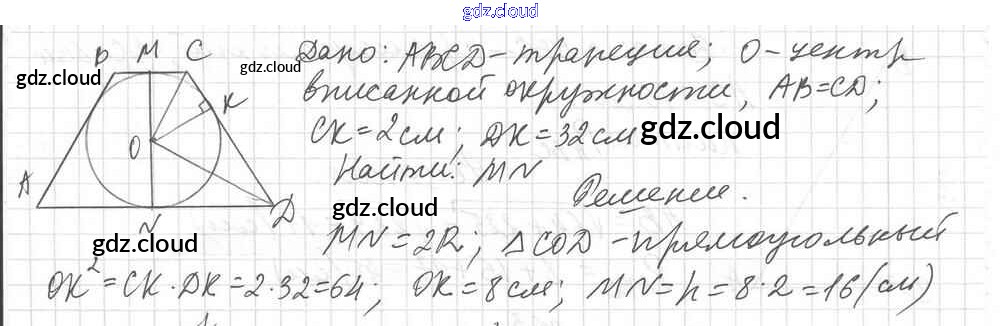 gdz.cloud
B M C
gdz.cloud
K
O
A
N
D
gdz.cloud
Дано: ABCD - трапеция; O - центр
вписанной окружности, AB = CD;
CK = 2 см; DK = 32 см
gdz.cloud
Найти: MN
Решение.
gdz.cloud
MN = 2R; △COD - прямоугольный
OK² = CK · DK = 2 · 32 = 64; OK = 8 см; MN = h = 8 · 2 = 16 (см)